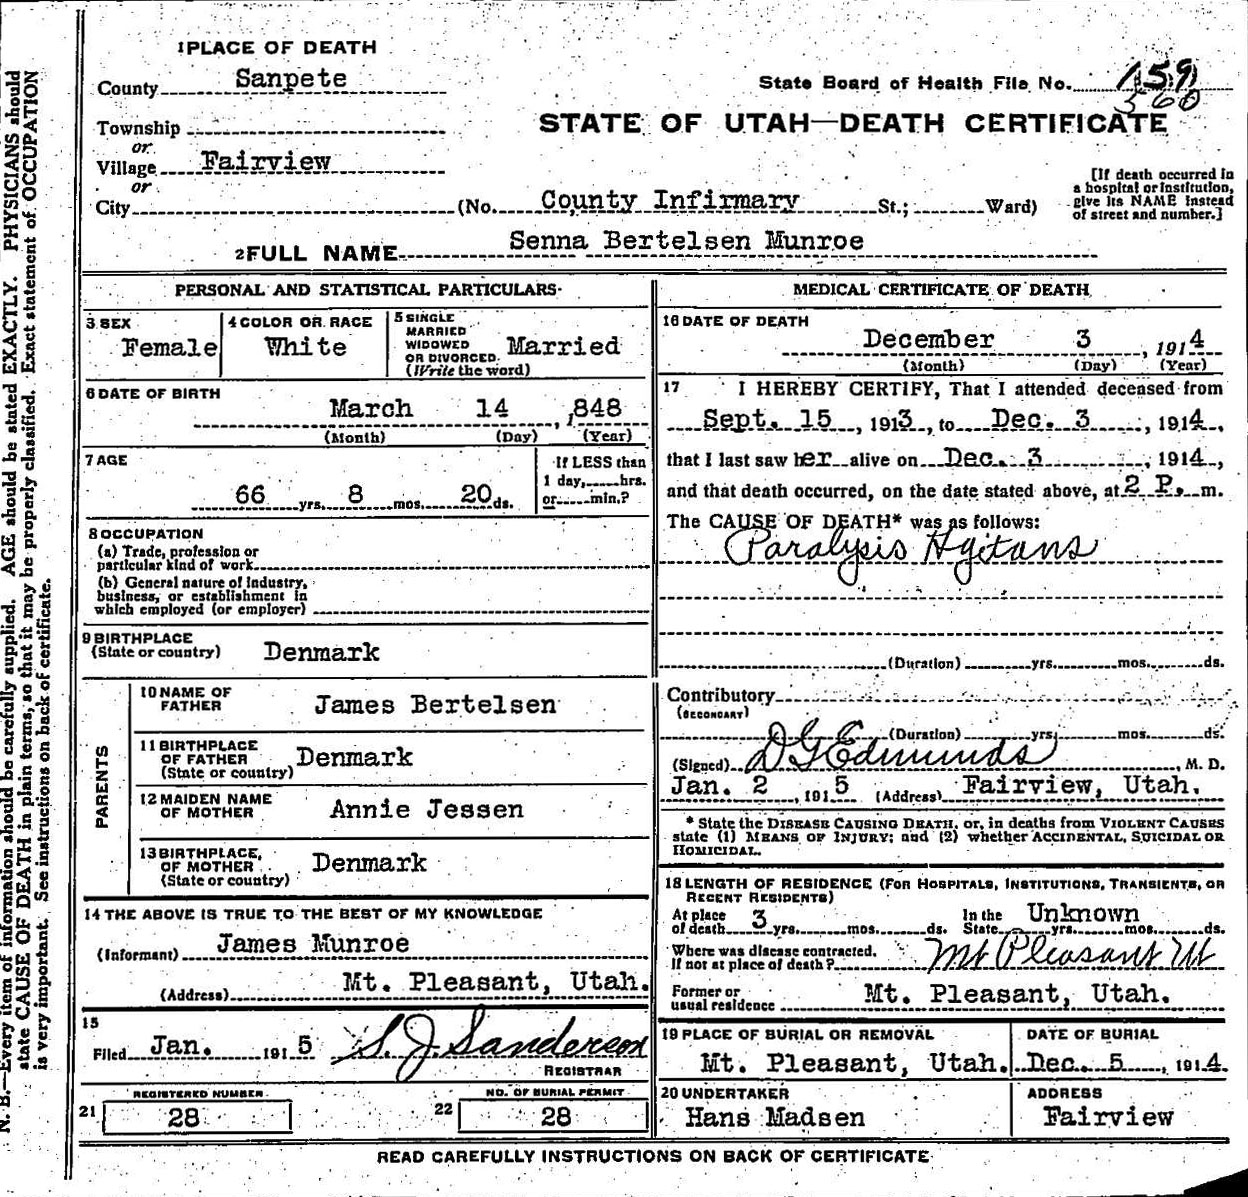 1 PLACE OF DEATH
County Sanpete
State Board of Health File No. 159
560
Township
or
Village Fairview
or
STATE OF UTAH—DEATH CERTIFICATE
City (No. County Infirmary St.; Ward)
[If death occurred in
a hospital or institution,
give its NAME instead
of street and number.]
2 FULL NAME Senna Bertelsen Munroe
PERSONAL AND STATISTICAL PARTICULARS
3 SEX
Female
4 COLOR OR RACE
White
5 SINGLE
MARRIED
WIDOWED
OR DIVORCED
(Write the word)
Married
6 DATE OF BIRTH
March 14, 1848
(Month) (Day) (Year)
7 AGE
66 yrs. 8 mos. 20 ds.
If LESS than
1 day, hrs.
or min.?
8 OCCUPATION
(a) Trade, profession or
particular kind of work
(b) General nature of industry,
business, or establishment in
which employed (or employer)
9 BIRTHPLACE
(State or country) Denmark
PARENTS
10 NAME OF
FATHER James Bertelsen
11 BIRTHPLACE
OF FATHER
(State or country) Denmark
12 MAIDEN NAME
OF MOTHER Annie Jessen
13 BIRTHPLACE,
OF MOTHER
(State or country) Denmark
14 THE ABOVE IS TRUE TO THE BEST OF MY KNOWLEDGE
(Informant) James Munroe
(Address) Mt. Pleasant, Utah.
15
Filed Jan. 1915 S. J. Sanderson
REGISTRAR
REGISTERED NUMBER
21 28
NO. OF BURIAL PERMIT
22 28
MEDICAL CERTIFICATE OF DEATH
16 DATE OF DEATH
December 3, 1914
(Month) (Day) (Year)
17 I HEREBY CERTIFY, That I attended deceased from
Sept. 15, 1913, to Dec. 3, 1914,
that I last saw her alive on Dec. 3, 1914,
and that death occurred, on the date stated above, at 2 P. m.
The CAUSE OF DEATH* was as follows:
Paralysis Agitans
(Duration) yrs. mos. ds.
Contributory
(SECONDARY)
(Duration) yrs. mos. ds.
(Signed) D G Edmunds, M. D.
Jan. 2, 1915 (Address) Fairview, Utah.
* State the DISEASE CAUSING DEATH, or, in deaths from VIOLENT CAUSES
state (1) MEANS OF INJURY; and (2) whether ACCIDENTAL, SUICIDAL OR
HOMICIDAL.
18 LENGTH OF RESIDENCE (FOR HOSPITALS, INSTITUTIONS, TRANSIENTS, OR
RECENT RESIDENTS)
At place
of death 3 yrs. mos. ds.
In the
State Unknown yrs. mos. ds.
Where was disease contracted.
If not at place of death? Mt Pleasant Ut
Former or
usual residence Mt. Pleasant, Utah.
19 PLACE OF BURIAL OR REMOVAL
Mt. Pleasant, Utah.
DATE OF BURIAL
Dec. 5, 1914.
20 UNDERTAKER
Hans Madsen
ADDRESS
Fairview
READ CAREFULLY INSTRUCTIONS ON BACK OF CERTIFICATE
N. B.—Every item of information should be carefully supplied. AGE should be stated EXACTLY. PHYSICIANS should
state CAUSE OF DEATH in plain terms, so that it may be properly classified. Exact statement of OCCUPATION
is very important. See instructions on back of certificate.